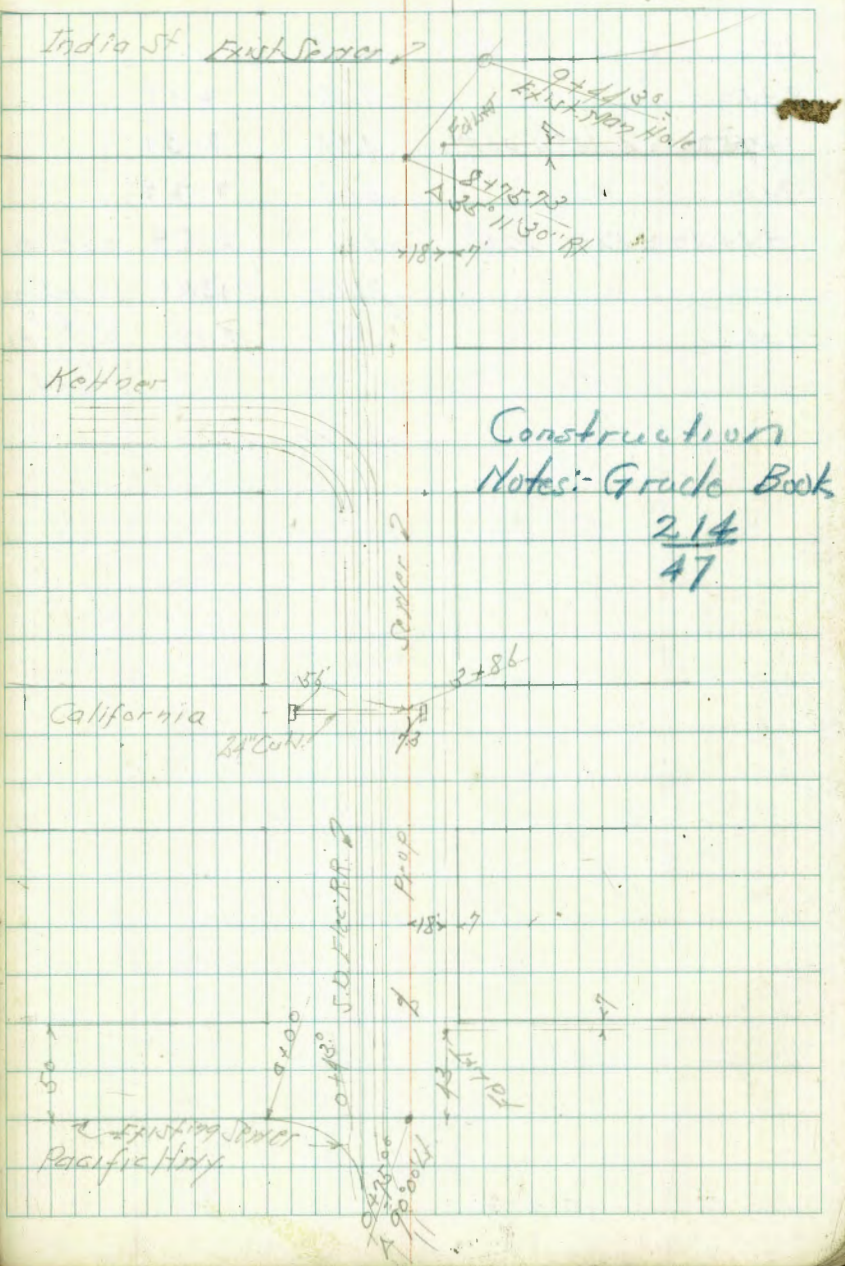 India St. Exist Sewer
9+44.30
Exist. Man Hole
8+75.73
Δ 35° 11' 30" Rt
18 7
Kettner
Construction
Notes:- Grade Book
214
47
Sewer
56
3+86
California
24" Culv.
7.3
S.D. Elec. R.R.
Prop.
18 7
7
50
0+00
0+43
43
Existing Sewer
Pacific Hwy.
0+75.00
Δ 90° 00'